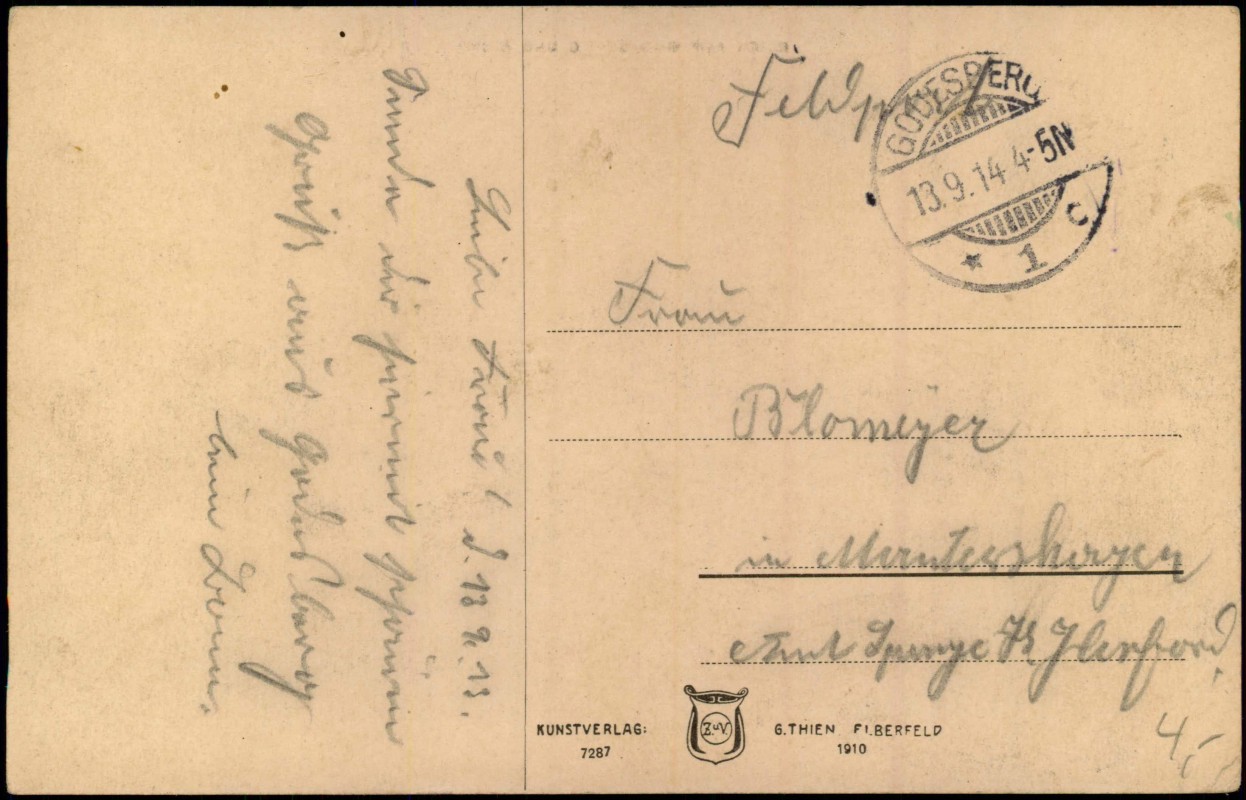 Feldpost
GODESBERG
13.9.14.4-5N
* 1 c
Frau
Blomeyer
in Mantershagen
Amt Spenge Kr. Herford
Liebe Frau! d. 13.9.13.
Sende dir hiermit schönen
Gruß aus Godesberg
dein
KUNSTVERLAG:
7287
Z.u.V.
G. THIEN ELBERFELD
1910
4,-